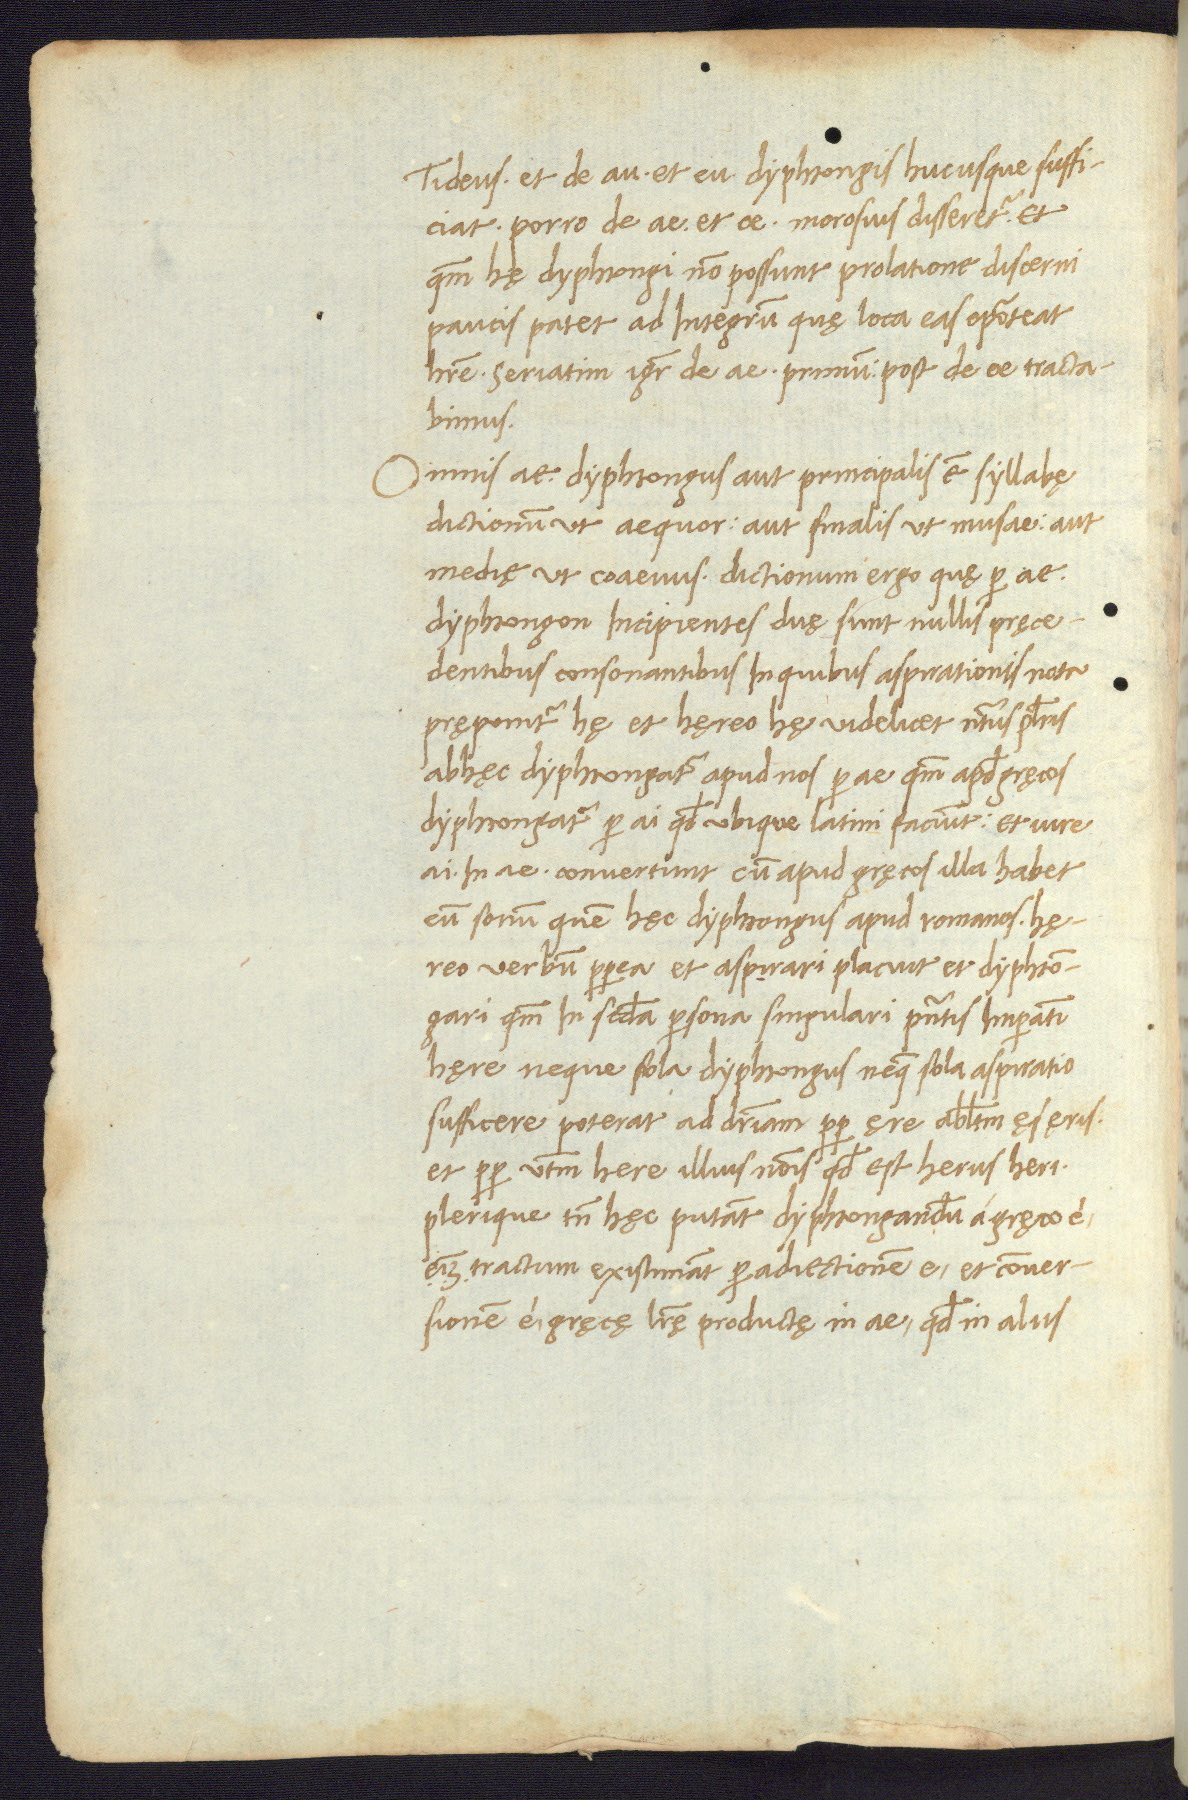 Tideus. et de au. et eu. dyphtongis hucusque suffi-
ciat. porro de ae. et oe. morosius disseret᷑. Et
qm̄ hę dyphtongi nō possunt prolatione discerni
paucis patet ad Integrū quę loca eas oporteat
hr̄e. Seriatim igr̄ de ae. primū: post de oe tracta-
bimus.
Omnis ae. dyphtongus aut principalis ē syllabę
dictionū ut aequor: aut finalis ut musae: aut
medię ut coaeuus. dictionum ergo quę ꝑ ae.
dyphtongon Incipientes duę sunt nullis pręce-
dentibus consonantibus In quibus aspirationis nota
pręponit᷑ hę et hęreo hę videlicet
abhęc dyphtongat᷑ apud nos ꝑ ae qm̄ apd̄ gręcos
dyphtongat᷑ ꝑ ai qd̄ ubique latini faciūt: Et iure
ai. In ae. conuertunt cū apud gręcos illa habet
eū sonū quē hęc dyphtongus apud romanos. hę-
reo verbū ꝓpęa et aspirari placuit et dyphtō-
gari qm̄ In scd̄a ꝑsona singulari pn̄tis Imꝑati
hęre neque sola dyphtongus neq̄ sola aspiratio
sufficere poterat ad dr̄iam ꝓp ęre abl̄tm ęs ęris.
et ꝓp vtm̄ here illius nōis qd̄ est herus heri.
plerique tn̄ hęc putāt dyphtongandū á gręco é,
tractum existimāt ꝑ adiectionē e, et cōuer-
sionē é, gręcę lr̄ę productę in ae, qd̄ in aliis